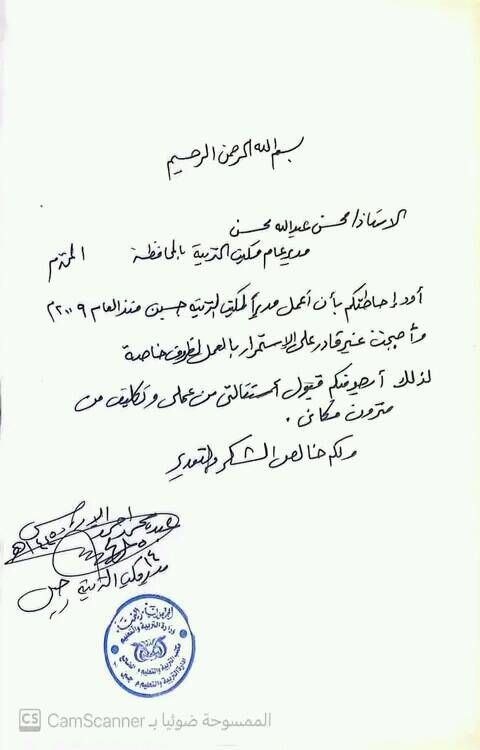 بسم الله الرحمن الرحيم
الاستاذ/ محسن عبدالله محسن
مدير عام مكتب التربية بالمحافظة المحترم
أود إحاطتكم بأن أعمل مديراً لمكتب التربية حسين منذ العام ٢٠٠٩م
وأصبحت غير قادر على الإستمرار بالعمل لظروف خاصة
لذلك أرجو منكم قبول إستقالتي من عملي وتكليف من
ترون مكاني.
ولكم خالص الشكر والتقدير
محمد احمد
مدير مكتب التربية
الجمهورية اليمنية
وزارة التربية والتعليم
مكتب التربية والتعليم م. الضالع
إدارة التربية والتعليم م.
CS CamScanner الممسوحة ضوئيا بـ